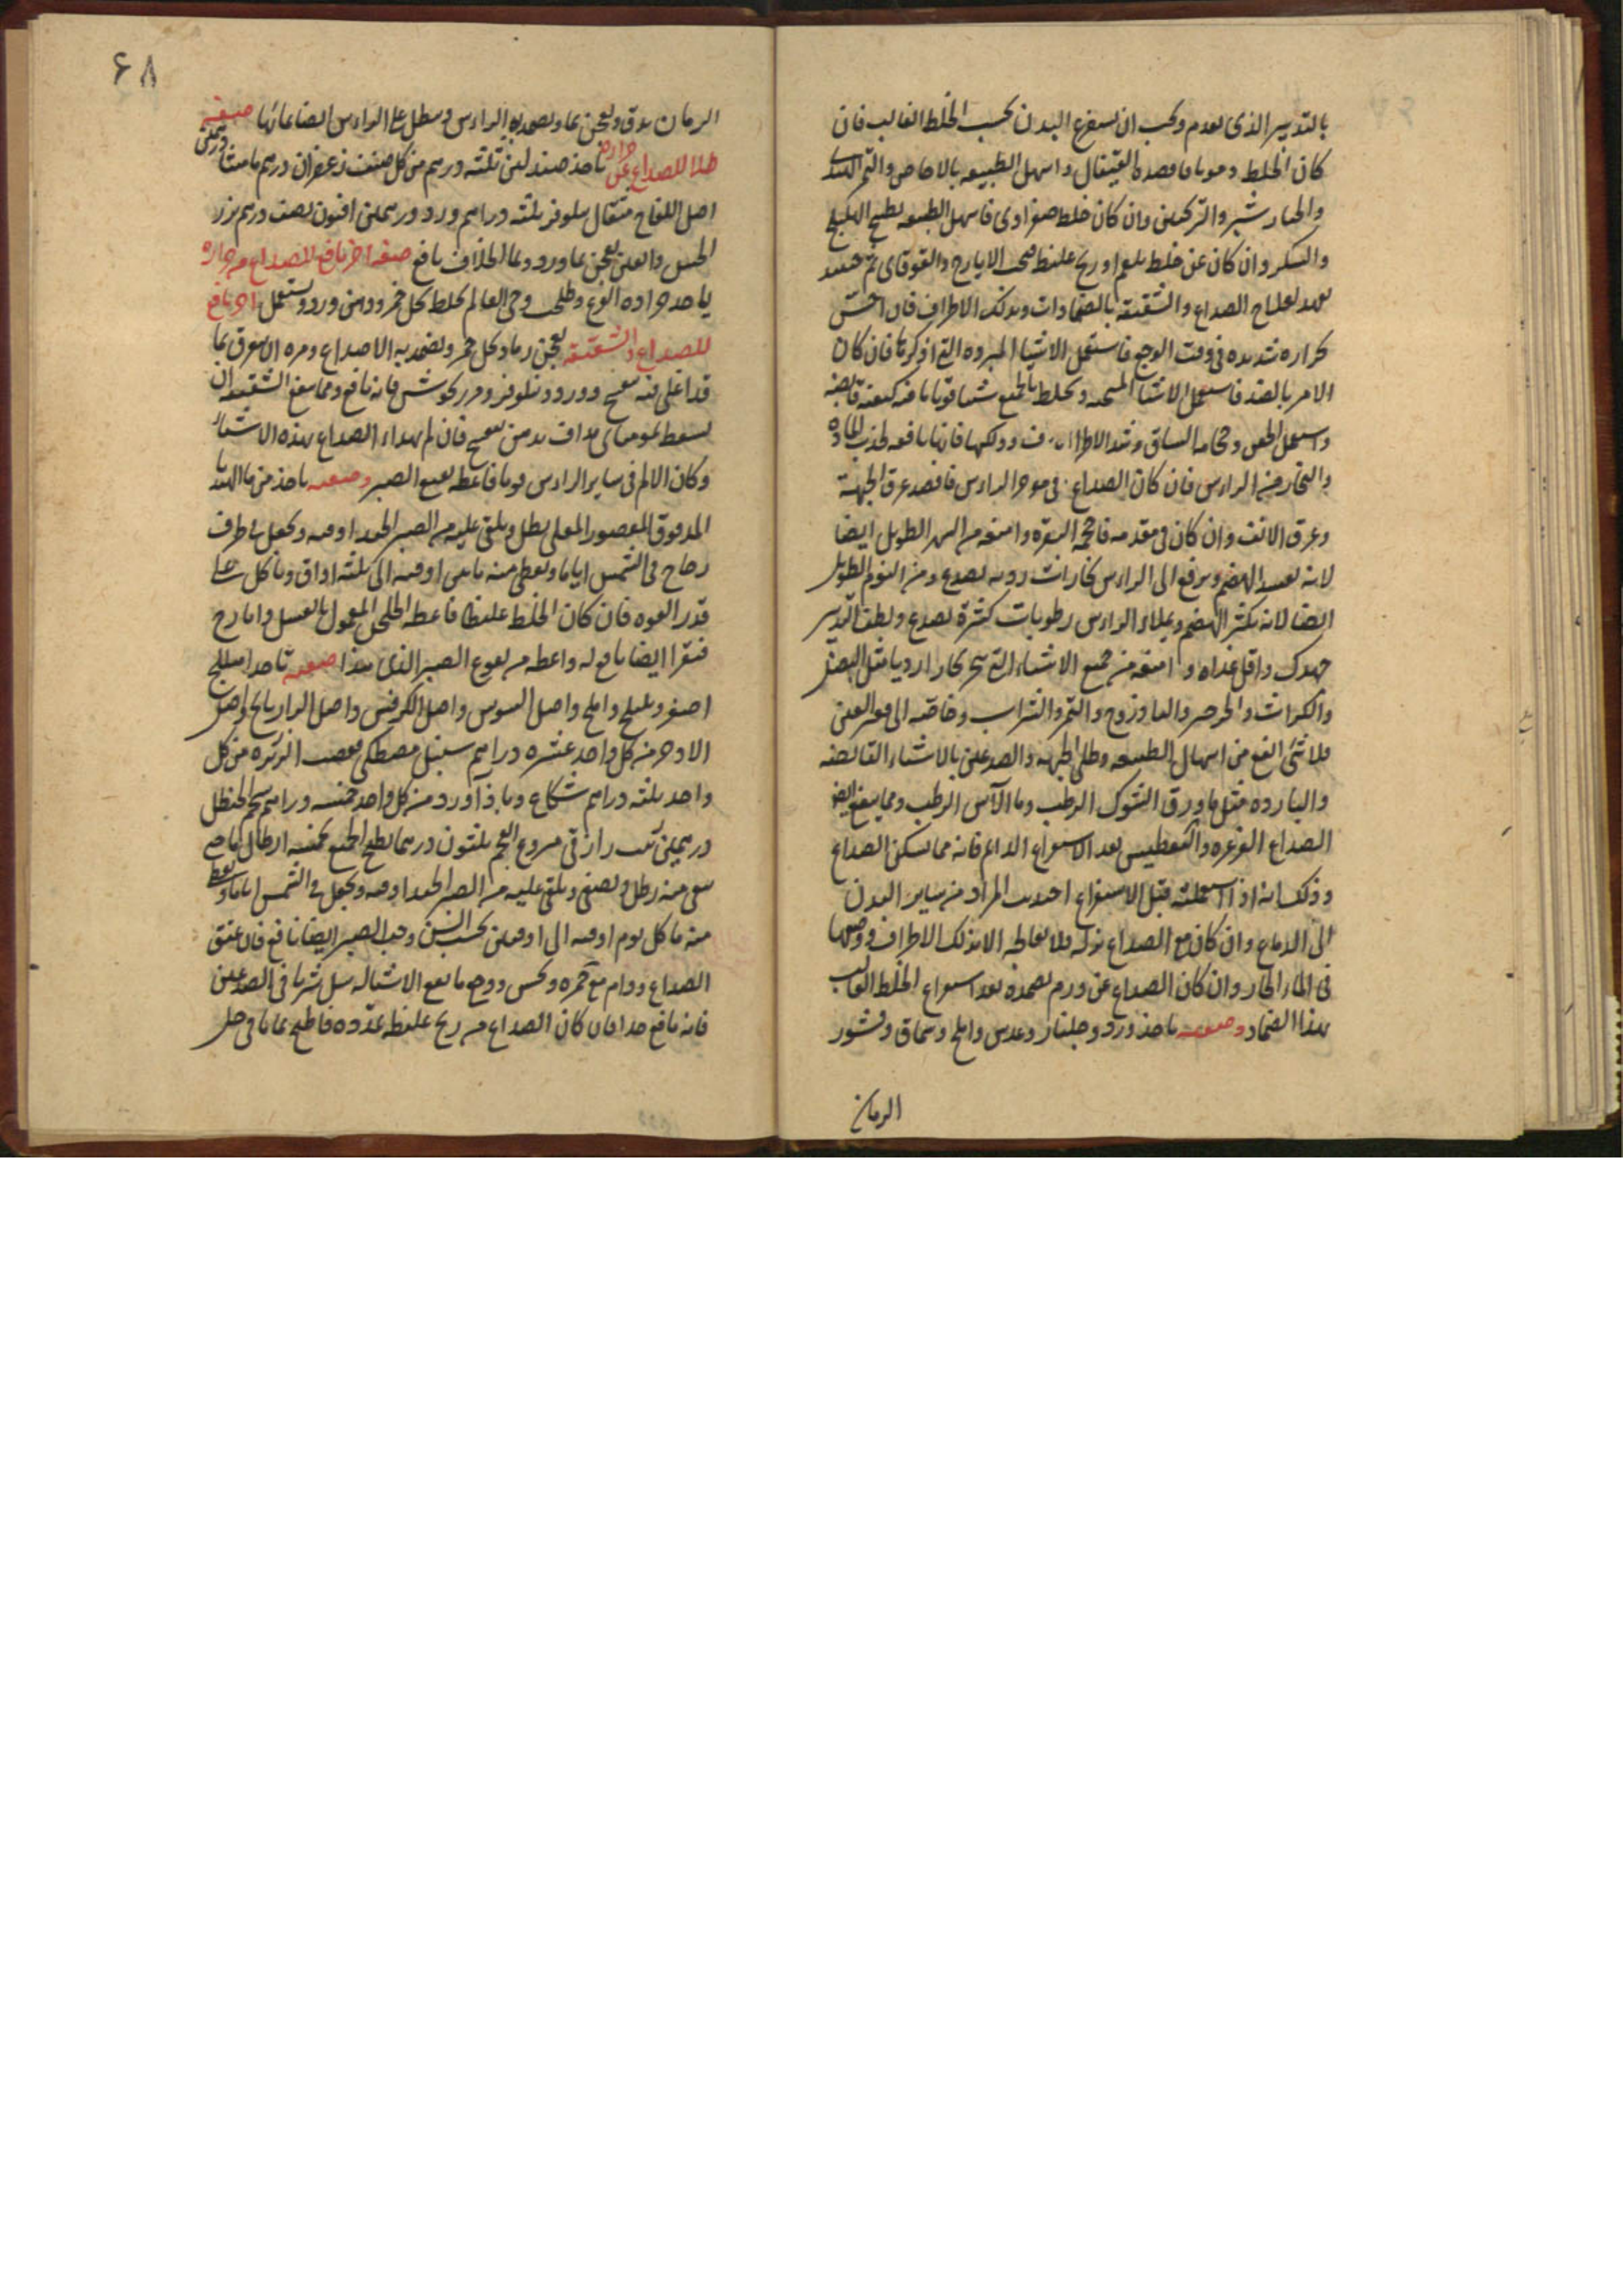 بالتدبير الذى تقدم ويجب ان يستفرغ البدن بحسب الخلط الغالب فان
كان الخلط دمويا فافصده القيفال واسهل الطبيعه بالاجاص والتمر الهندى
والخيار شنبر والترنجبين وان كان خلط صفراوى فاسهل الطبيعه بطبيخ الهليلج
والسكر وان كان عن خلط بلغم او ريح غليظ فحب الايارج والقوقاى ثم حينئذ
تعهد لعلاج الصداع والشقيقه بالضمادات وبدلك الاطراف فان احس
بحراره شديده فى وقت الوجع فاستعمل الاشيا المبرده التى اذكرها فان كان
الامر بالضد فاستعمل الاشيا المسخنه وتخلط بالجميع شيا قويا ما فيه كيفية قابضه
واستعمل الحقن وحجامه الساق وشد الاطراف ودلكها فانها نافعه لجذب الماده
والبخار من الراس فان كان الصداع فى موخر الراس فافصد عرق الجبهة
وعرق الانف وان كان فى مقدمه فاحجمه النقره وامنعه من السهر الطويل ايضا
لانه يفسد الهضم ويرفع الى الراس بخارات رديه تصدع ومن النوم الطويل
ايضا لانه يكثر الهضم ويملاء الراس رطوبات كثيرة تصدع ولطف التدبير
جهدك واقل غذاه وامنعه من جميع الاشياء التى تبخر بخارا رديا مثل البصل
والكراث والجرجير والباذروج والتمر والشراب وخاصه الى
فلا شى انفع من اسهال الطبيعه وطلى الجبهه والصدغين بالاشياء القابضه
والبارده مثل ما ورق الشوك الرطب وما الآس الرطب ومما ينفع ايضا
الصداع الغرغره والتعطيس بعد الاستفراغ الدايم فانه مما يسكن الصداع
وذلك انه اذا استعملته قبل الاستفراغ اجتذب المواد من ساير البدن
الى الدماغ وان كان مع الصداع نزله فلا تعالجه الا بدلك الاطراف ووضعها
فى الماء الحار وان كان الصداع عن ورم تضمده بعد استفراغ الخلط الغالب
بهذا الضماد وصفته ياخذ ورد وجلنار وعدس واملج وسماق وقشور
الرمان
٦٨
الرمان يدق ويعجن بما ويضمد به الراس وينطل على الراس ايضا بمائها صفة
طلا للصداع عن حرارة تاخذ صندلين ثلثه درهم من كل صنف زعفران درهم ماميثا درهمين
اصل اللفاح مثقال نيلوفر ثلثه دراهم ورد درهمين افيون نصف درهم بزر
الخس يعجن بما ورد وبما الخلاف نافع صفه اخر نافع للصداع من حراره
ياخذ جراده القرع وطحلب وحى العالم يخلط بخل خمر ودهن ورد ويستعمل اخر نافع
للصداع والشقيقه يعجن رماد بخل خمر ويضمد به الاصداغ ومره الا يعرق بما
قد اغلى فيه بنفسج وورد ونيلوفر ومرزنجوش فانه نافع ومما ينفع الشقيقه ان
يسعط بموميائ مداف بدهن بنفسج فان لم يهداء الصداع بهذه الاشيا
وكان الالم فى ساير الراس قويا فاعطه نقيع الصبر وصفته ياخذ من ما الهندبا
المدقوق المعصور المغلى رطل ويلقى عليه من الصبر الجيد اوقيه ويجعل فى ظرف
زجاج فى الشمس اياما ويعطى منه ما بين اوقيه الى ثلثه اواق وياكل على
قدر القوه فان كان الخلط غليظا فاعطه المعمول بالعسل وايارج
فيقرا ايضا نافع له واعطه من نقوع الصبر الذى هذا صفته تاخذ اهليلج
اصفر وبليلج واملج واصل السوس واصل الكرفس واصل الرازيانج واصل
الاذخر من كل واحد عشره دراهم سنبل مصطكى قصب الذريره من كل
واحد ثلثه دراهم شكاع وباذآورد من كل واحد خمسه دراهم شحم الحنظل
درهمين زبيب رازقى منزوع العجم ثلثون درهما يطبخ الجميع بخمسه ارطال ما حتى
يبقى منه رطل ويصفى ويلقى عليه من الصبر الجيد اوقيه ويجعل فى الشمس اياما ويعطى
منه ما كل يوم اوقيه الى اوقيتين بحسب السن وحب الصبر ايضا نافع فان عتق
الصداع ودام مع حمره ونخس ووجع ما ينفع الا شيا له سل شريانى الصدغين
فانه نافع جدا فان كان الصداع من ريح غليظه ممدده فاطبخ بما يافى خل